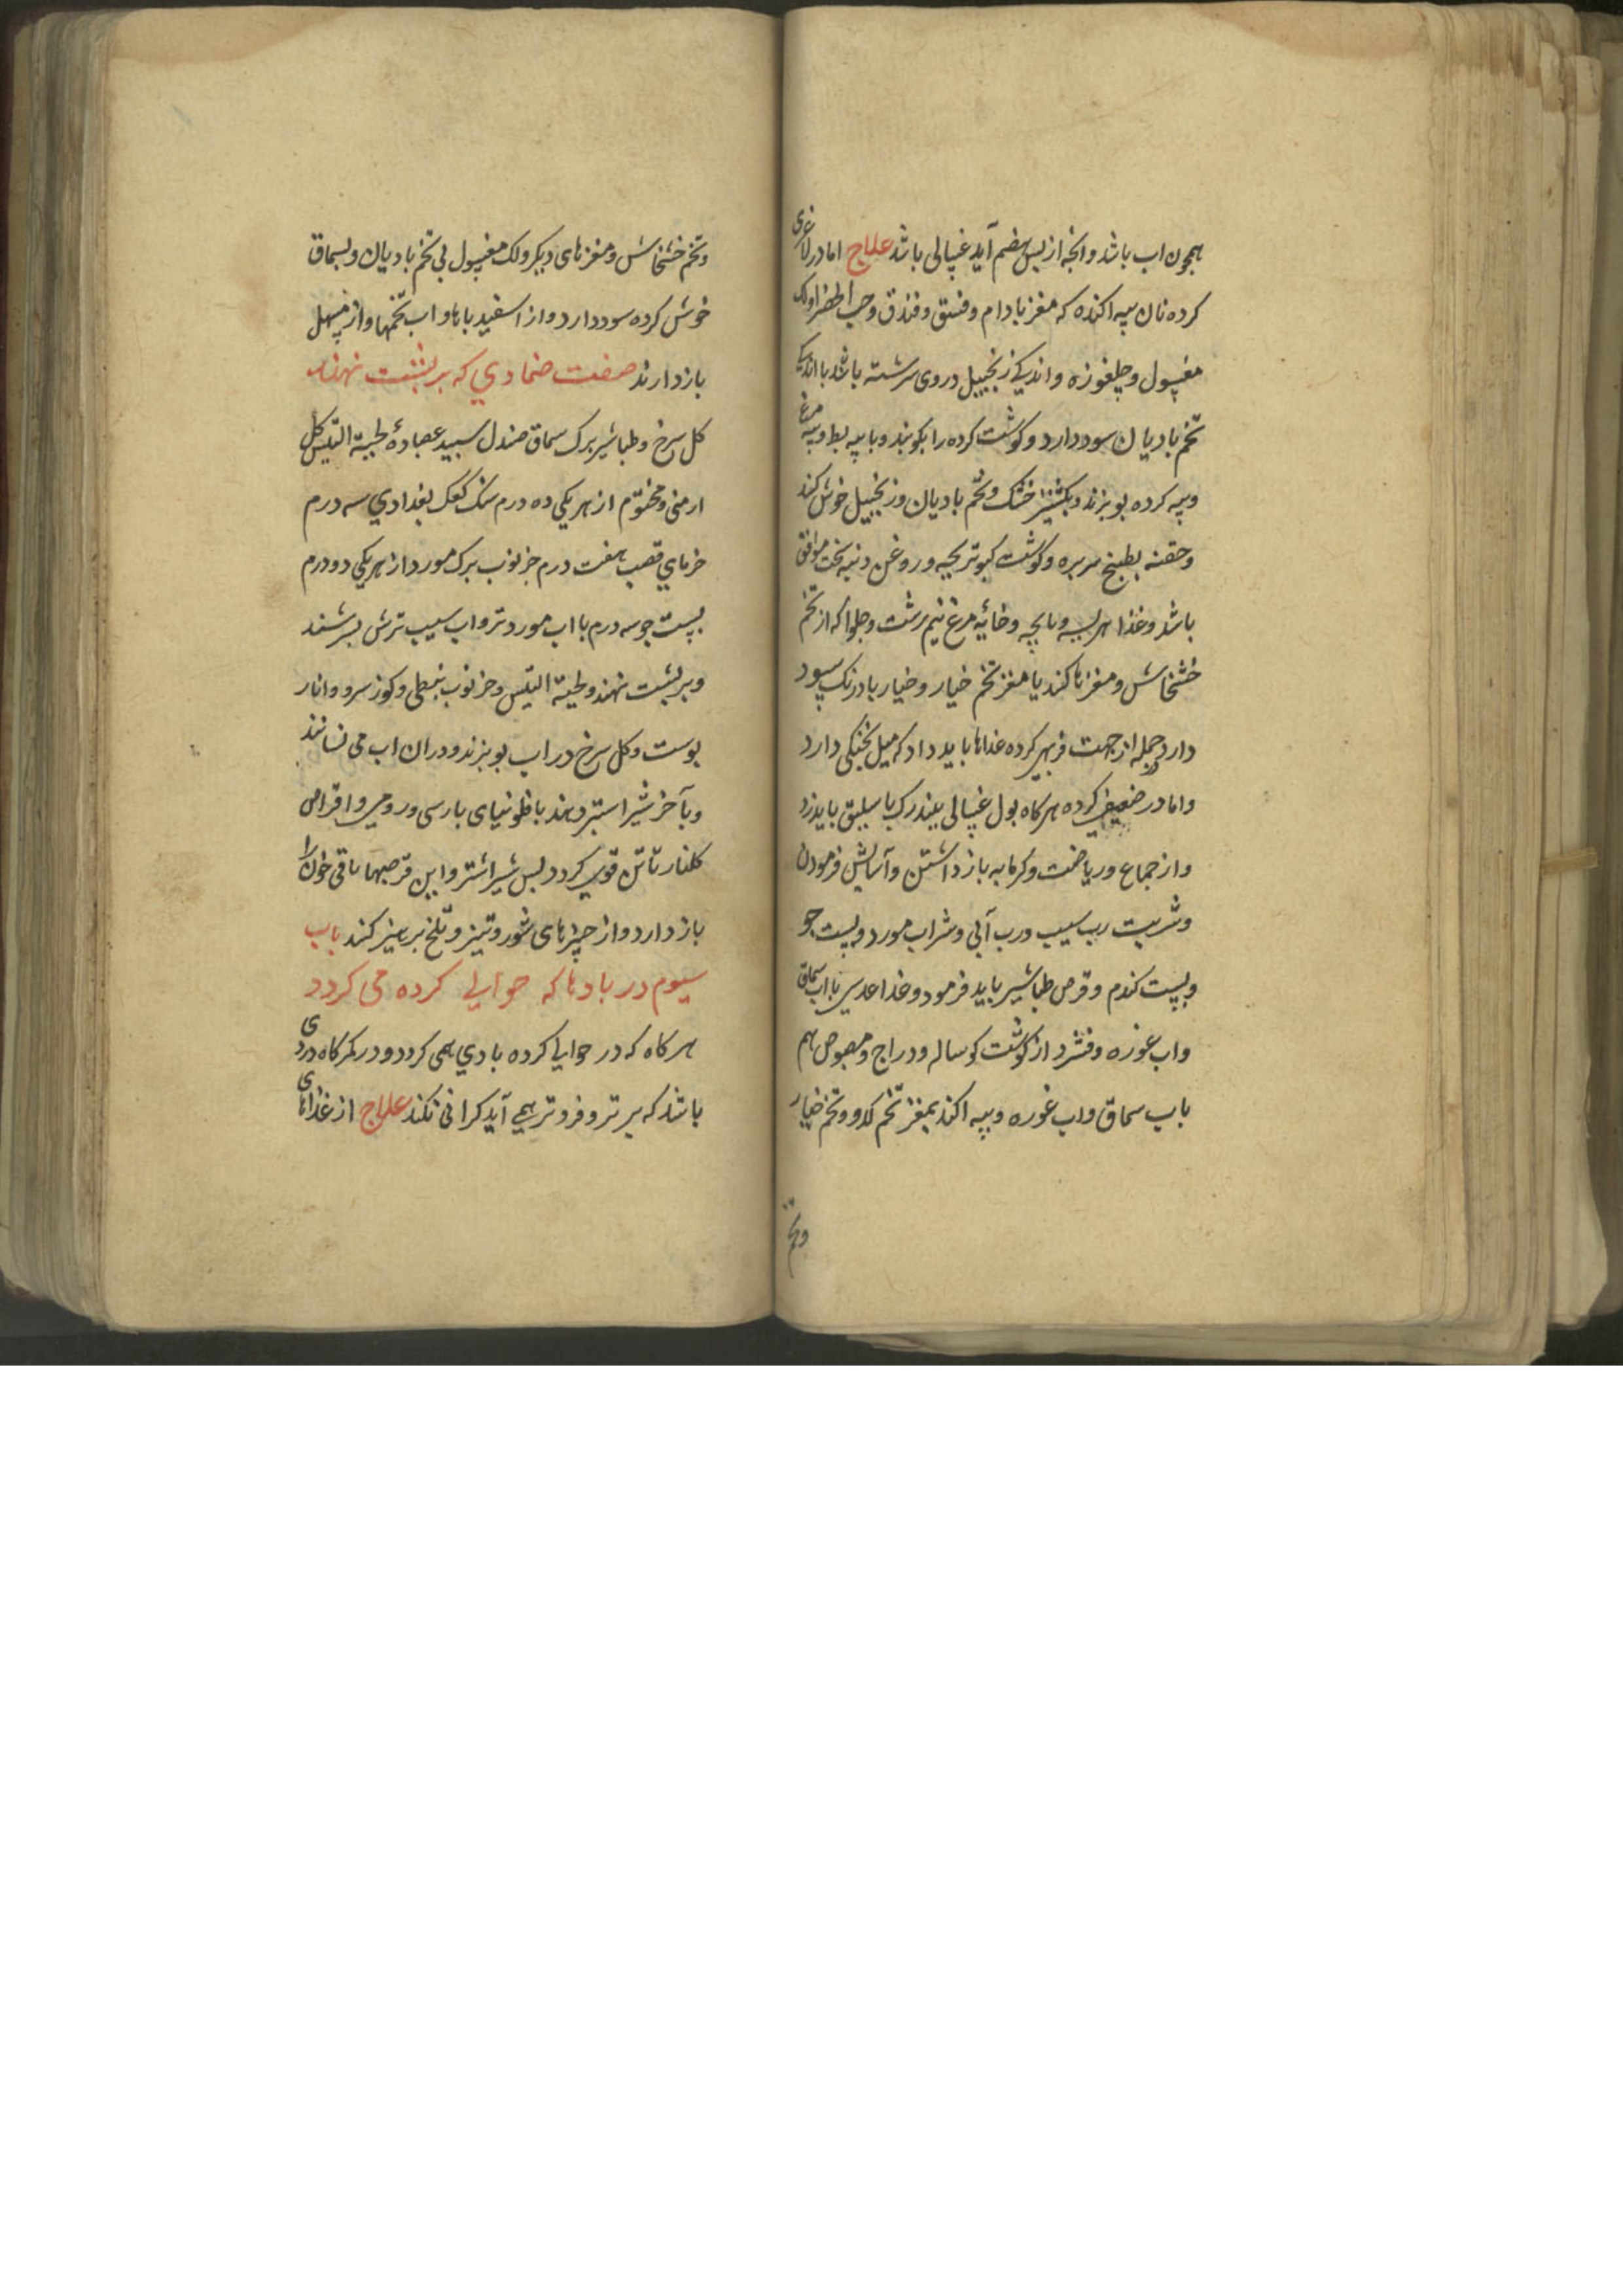 همچون اب باشد وانجه از پس هضم آید غسالی باشد علاج اما در لاغری
کرده نان سپه اکنده که مغز بادام و فستق و فندق و حب الحضرا و لک
مغسول و چلغوزه و اندکی زنجبیل در وی سرشته باشد با اندکی
تخم بادیان سود دارد و کوشت کرده را بکوبند و با پیه بط و پیه مرغ
و پیه کرده بوبزند و بکشنیز خشک و تخم بادیان و زنجبیل خوش کند
و حقنه بطبیخ سر بره و کوشت کبوتر بچه و روغن دنبه سخت موافق
باشد و غذا هریسه و باچه و خائه مرغ نیم برشت و حلوا که از تخم
خشخاش و مغزها کند یا مغز تخم خیار و خیار بادرنک سود
دارد و جمله از جهت فربهی کرده غذاها باید داد که میل بخنکی دارد
و اما در ضعیفی کرده هرکاه بول غسالی بیند رک باسلیق باید زد
و از جماع و ریاضت و کرمابه باز داشتن و آسایش فرمودن
و شربت رب سیب و رب آبی و شراب مورد و پست جو
و پست کندم و قرص طباشیر باید فرمود و غذا عدسی با اب سماق
و اب غوره و فشرد از کوشت کوساله و دراج و مصوص هم
باب سماق و اب غوره و پیه اکند بمغز تخم کدو و تخم خیار
وتخم
وتخم خشخاش و مغزهای دیکر و لک مغسول بی تخم بادیان و بسماق
خوش کرده سود دارد و از اسفید باها و اب تخمها و از مسهل
باز دارند صفت ضمادی که بر پشت نهند
کل سرخ و طباشیر برک سماق صندل سبید عصارهٔ لحیة التیس کل
ارمنی و مختوم از هر یکی ده درم سک کعک بغدادی سه درم
خرمای قصب هفت درم خرنوب برک مورد از هر یکی دو درم
پست جو سه درم با اب مورد تر و اب سیب ترش بسرشند
و بر پشت نهند و لحیة التیس و خرنوب نبطی و کوز سرو و انار
بوست و کل سرخ در اب بوبزند و در ان اب می نسانند
و بآخر شیر استبر دهند با فلونیای بارسی و رومی و اقراص
کلنار تا تن قوی کردد پس شیر اشتر و این قرصها باقی خون را
باز دارد و از چیزهای شور و تیز و تلخ برهیز کنند باب
سیوم در بادها که حوالی کرده می کردد
هرکاه که در حوالی کرده بادی همی کردد و در کمرکاه دردی
باشد که برتر و فروتر همی آید کرانی نکند علاج از غذاهای